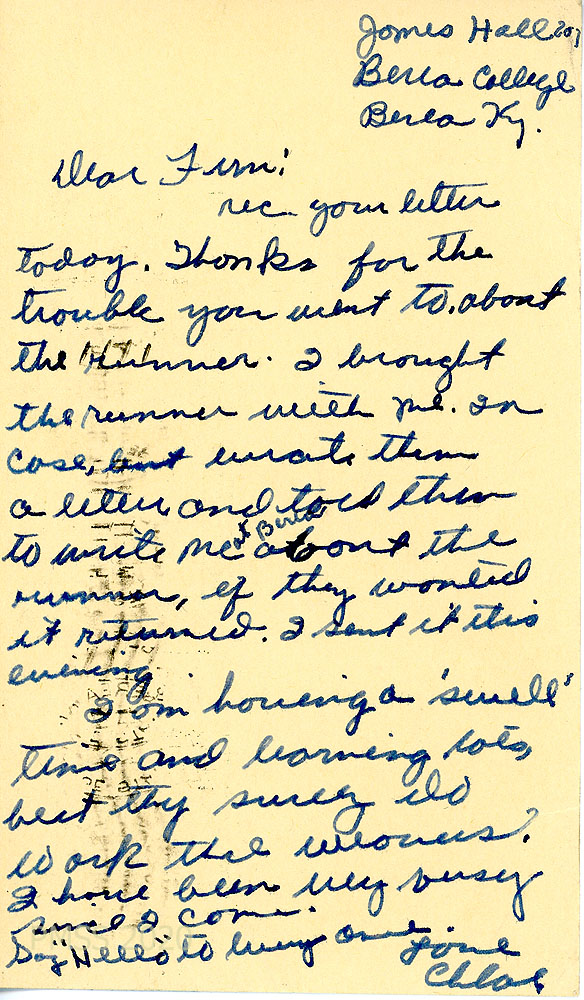 James Hall 207
Berea College
Berea Ky.
Dear Fern:
rec your letter
today. Thanks for the
trouble you went to about
the runner. I brought
the runner with me. In
case, but wrote them
a letter and told them
at Berea
to write me about the
runner, if they wanted
it returned. I sent it this
evening
I am having a 'swell'
time and learning lots,
but they surely do
work the weavers.
I have been very busy
since I come.
Say "Hello" to every one.
Love
Chloe